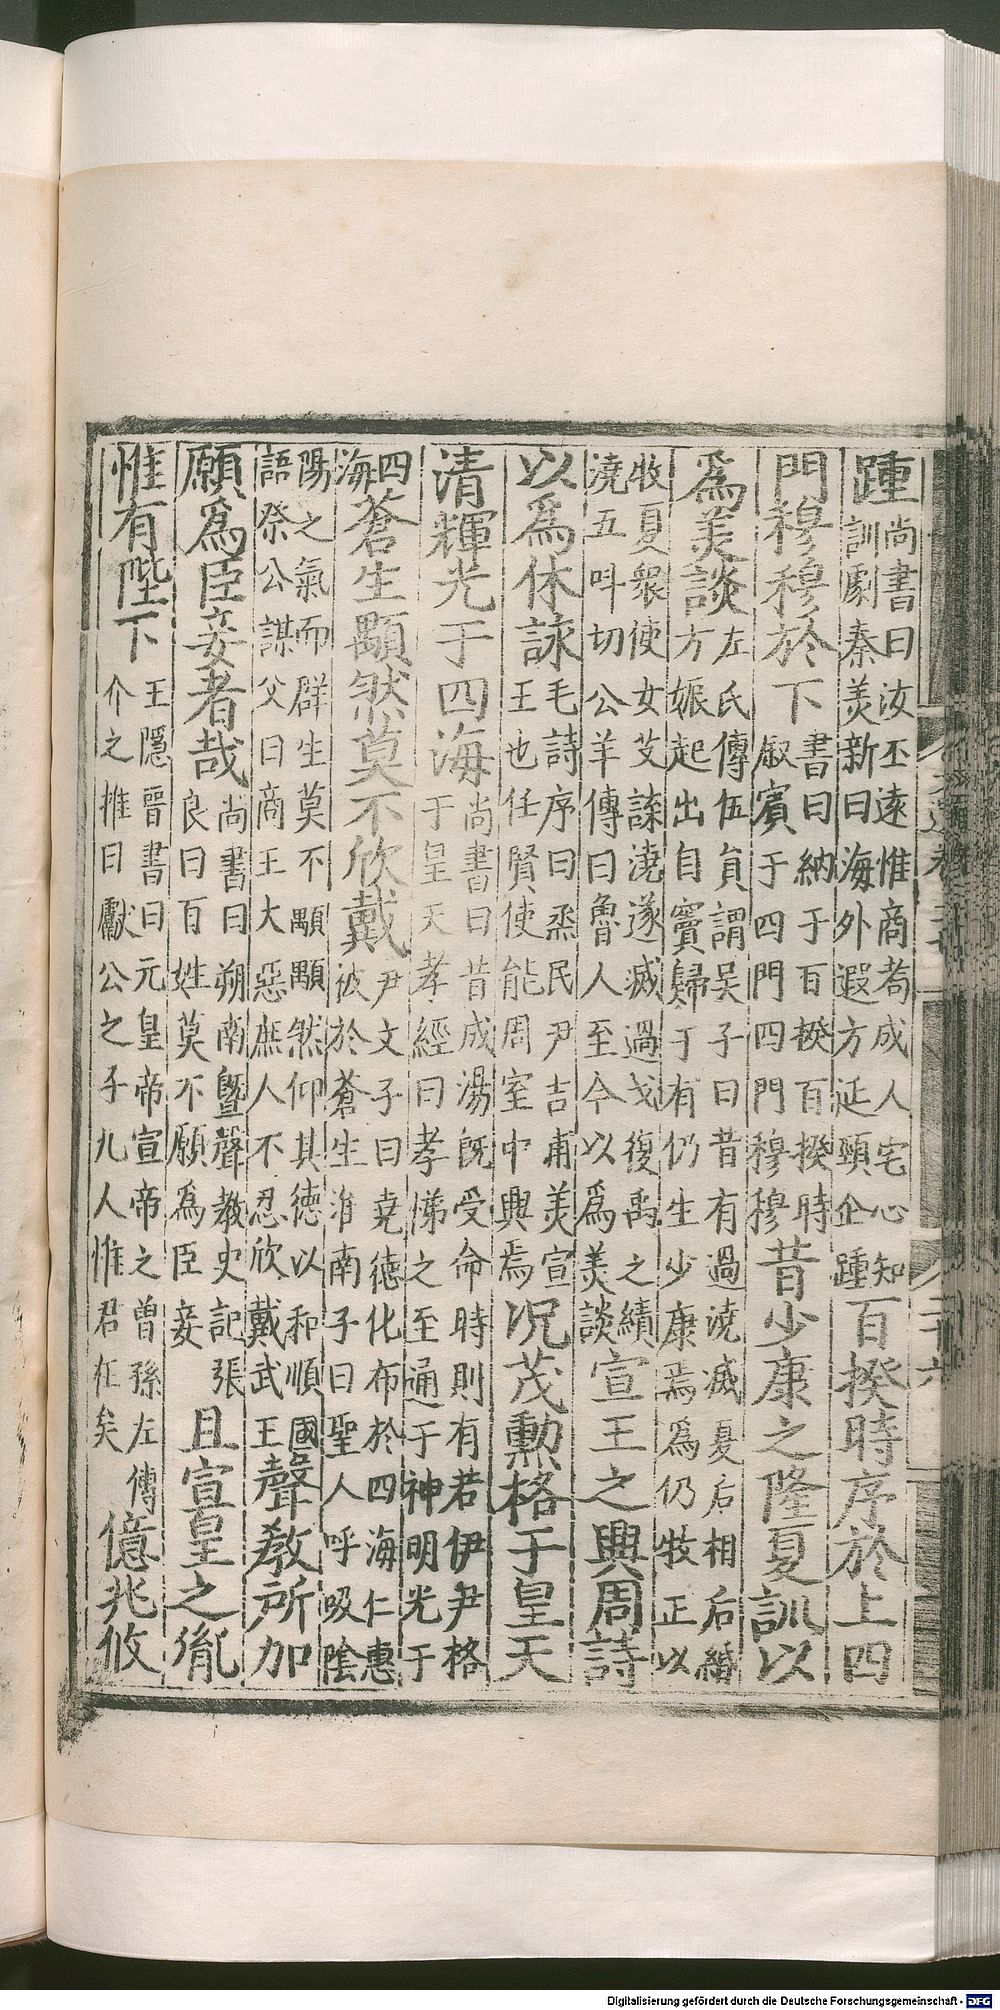 踵尚書曰汝丕遠惟商耇成人宅心知
訓劇秦美新曰海外遐方延頸企踵百揆時序於上四
門穆穆於下書曰納于百揆百揆時
叙賓于四門四門穆穆昔少康之隆夏訓以
為美談左氏傳伍員謂吳子曰昔有過澆滅夏后相后緡
方娠起出自竇歸于有仍生少康焉為仍牧正以
牧夏衆使女艾諜澆遂滅過戈復禹之績
澆五呌切公羊傳曰魯人至今以為美談宣王之興周詩
以為休詠毛詩序曰烝民尹吉甫美宣
王也任賢使能周室中興焉况茂勲格于皇天
清輝光于四海尚書曰昔成湯既受命時則有若伊尹格
于皇天孝經曰孝悌之至通于神明光于
四
海蒼生顒然莫不欣戴尹文子曰堯德化布於四海仁惠
被於蒼生淮南子曰聖人呼吸陰
陽之氣而群生莫不顒顒然仰其德以和順國
語祭公謀父曰商王大惡庶人不忍欣戴武王聲教所加
願為臣妾者哉尚書曰朔南暨聲教史記張
良曰百姓莫不願為臣妾且宣皇之胤
惟有陛下王隱晉書曰元皇帝宣帝之曾孫左傳
介之推曰獻公之子九人惟君在矣億兆攸
Digitalisierung gefördert durch die Deutsche Forschungsgemeinschaft - DFG